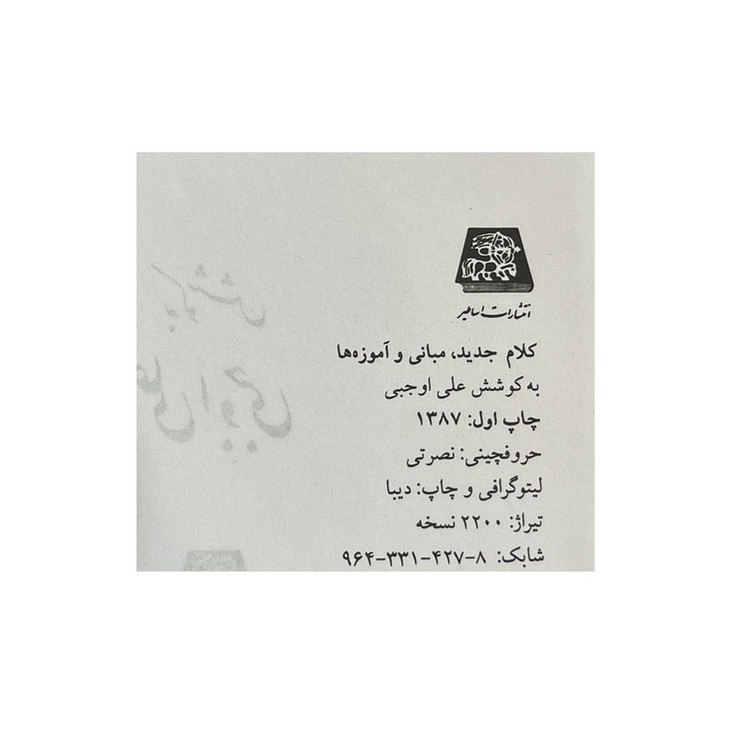 انتشارات اساطیر
کلام جدید، مبانی و آموزه‌ها
به کوشش علی اوجبی
چاپ اول: ۱۳۸۷
حروفچینی: نصرتی
لیتوگرافی و چاپ: دیبا
تیراژ: ۲۲۰۰ نسخه
شابک: ۸-۴۲۷-۳۳۱-۹۶۴